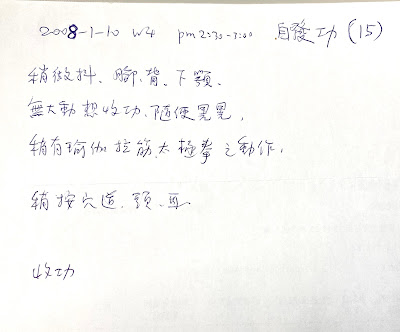 2008-1-10 W4 pm 2:30-3:00 自發功 (15)
稍微抖、腳、背、下顎、
無大動想收功、隨便晃晃,
稍有瑜伽拉筋、太極拳之動作,
稍按穴道、頸、耳
收功